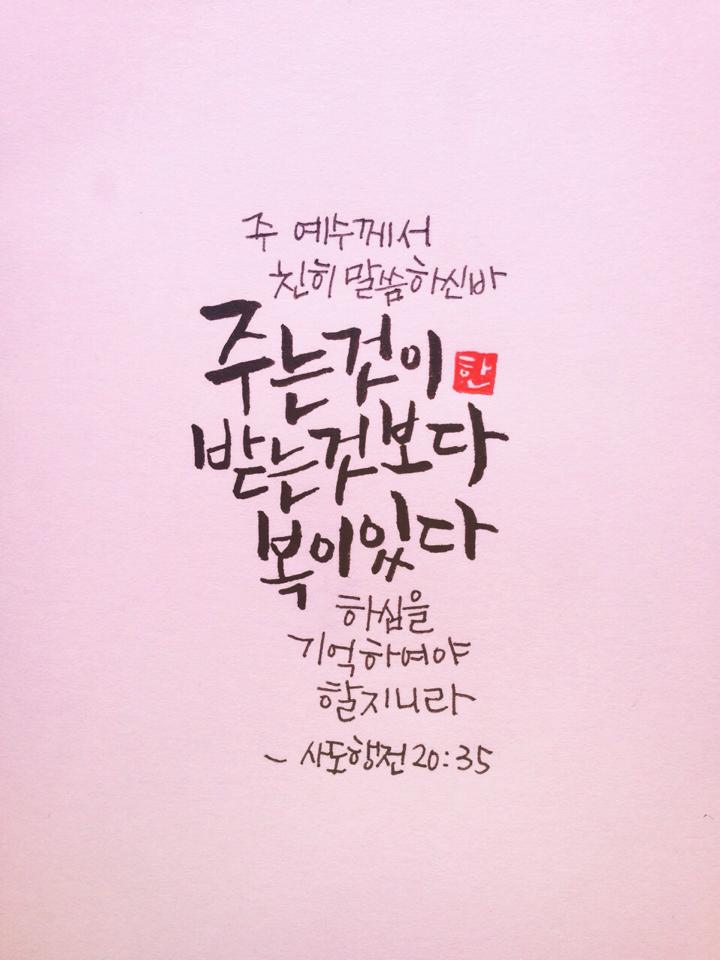 주 예수께서
친히 말씀하신바
주는것이
한
받는것보다
복이있다
하심을
기억하여야
할지니라
~ 사도행전 20:35